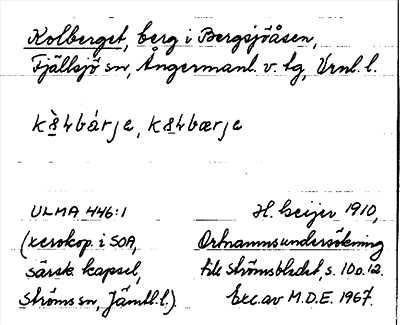 Kolberget, berg i Bergsjöåsen,
Fjällsjö sn, Ångermanl. v. tg, Vrnl. l.
kȣ̀ɬbárje, kȣɬbærje
ULMA 446:1
(xerokop. i SOA,
särsk. kapsel,
Ströms sn, Jämtl. l.)
H. Geijer 1910,
Ortnamnsundersökning
till Strömsbladet, s. 10 o. 12.
Exc. av M.D.E. 1967.